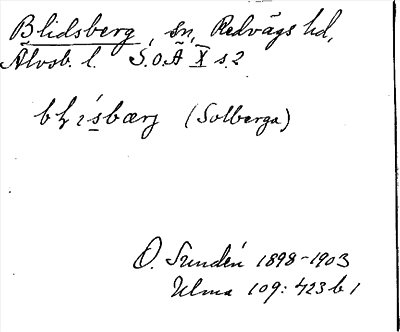 Blidsberg, sn, Redvägs hd,
Älvsb. l. S.O.Ä X s. 2
(Solberga)
O. Sundén 1898-1903
Ulma 109:423 b 1